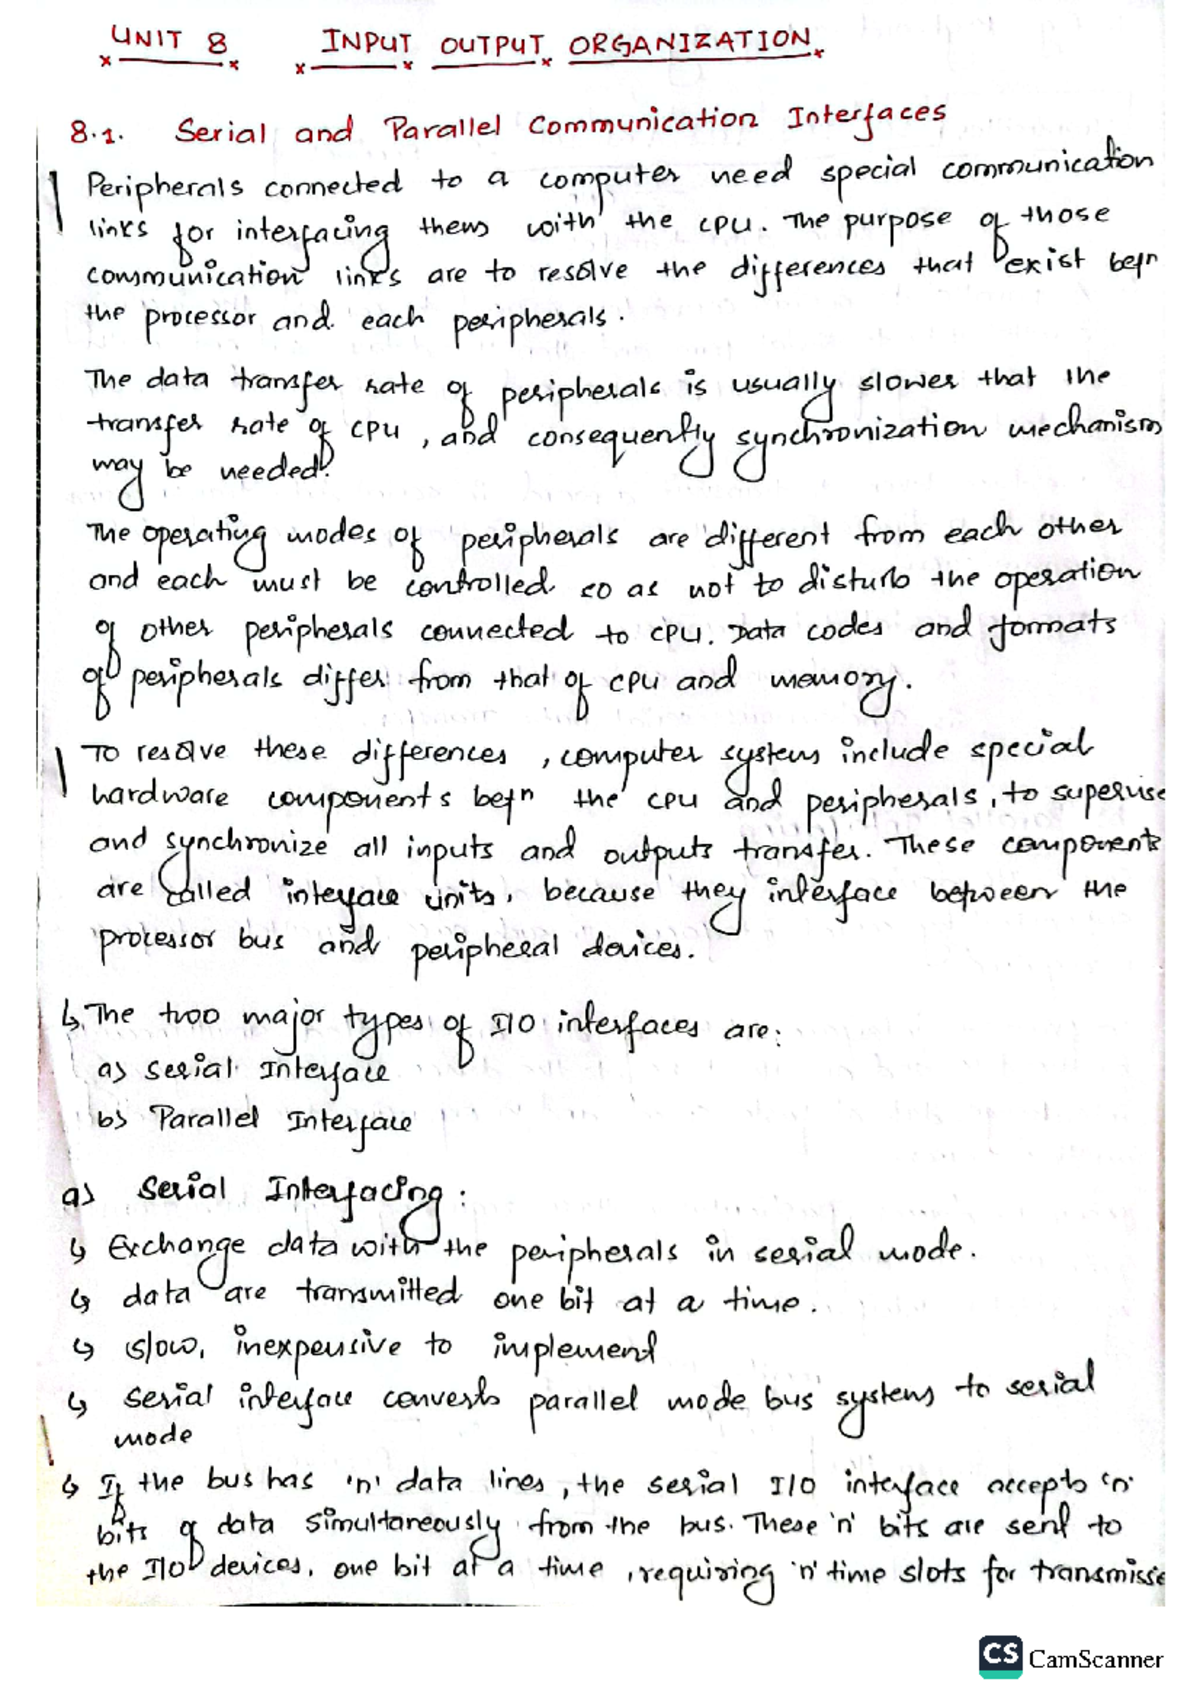 UNIT 8 INPUT OUTPUT ORGANIZATION
8.1. Serial and Parallel Communication Interfaces
Peripherals connected to a computer need special communication
links for interfacing them with the CPU. The purpose of those
communication links are to resolve the differences that exist betn
the processor and each peripherals.
The data transfer rate of peripherals is usually slower that the
transfer rate of CPU, and consequently synchronization mechanism
may be needed.
The operating modes of peripherals are different from each other
and each must be controlled so as not to disturb the operation
of other peripherals connected to CPU. Data codes and formats
of peripherals differ from that of CPU and memory.
To resolve these differences, computer system include special
hardware components betn the CPU and peripherals, to supervise
and synchronize all inputs and outputs transfer. These components
are called interface units, because they interface between the
processor bus and peripheral devices.
↳ The two major types of I/O interfaces are:
a) Serial Interface
b) Parallel Interface
a) Serial Interfacing:
↳ Exchange data with the peripherals in serial mode.
↳ data are transmitted one bit at a time.
↳ slow, inexpensive to implement
↳ Serial interface converts parallel mode bus systems to serial
mode
↳ If the bus has 'n' data lines, the serial I/O interface accepts 'n'
bits of data simultaneously from the bus. These 'n' bits are sent to
the I/O devices, one bit at a time, requiring 'n' time slots for transmissi
CS CamScanner